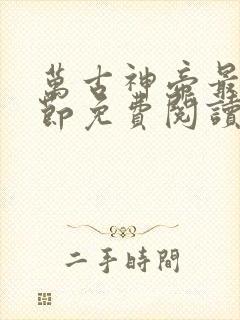 萬古神帝最
節免費閱讀
二手時間